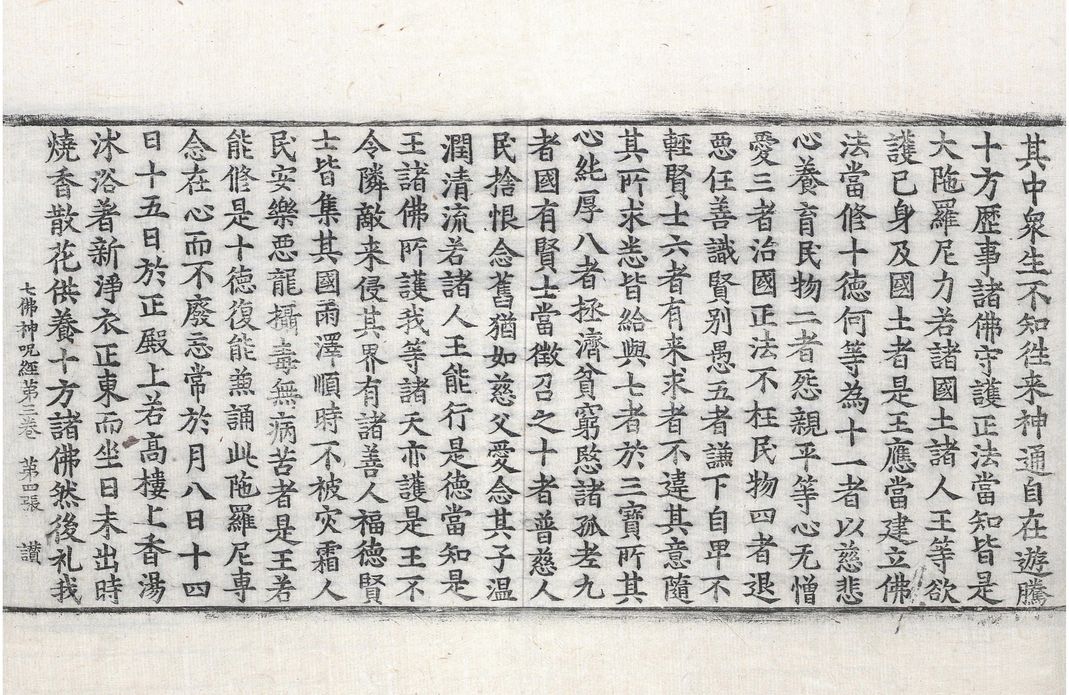 其中衆生不知往来神通自在遊騰
十方歷事諸佛守護正法當知皆是
大陁羅尼力若諸國土諸人王等欲
護已身及國土者是王應當建立佛
法當修十德何等為十一者以慈悲
心養育民物二者怨親平等心无憎
愛三者治國正法不枉民物四者退
惡任善識賢別愚五者謙下自卑不
輕賢士六者有来求者不違其意隨
其所求悉皆給與七者於三寶所其
心純厚八者拯濟貧窮慜諸孤老九
者國有賢士當徵召之十者普慈人
民捨恨念舊猶如慈父愛念其子温
潤清流若諸人王能行是德當知是
王諸佛所護我等諸天亦護是王不
令隣敵来侵其界有諸善人福德賢
士皆集其國雨澤順時不被灾霜人
民安樂惡龍攝毒無病苦者是王若
能修是十德復能兼誦此陁羅尼專
念在心而不廢忘常於月八日十四
日十五日於正殿上若高樓上香湯
沐浴著新淨衣正東而坐日未出時
燒香散花供養十方諸佛然後礼我
七佛神呪經第三卷 第四張 讃